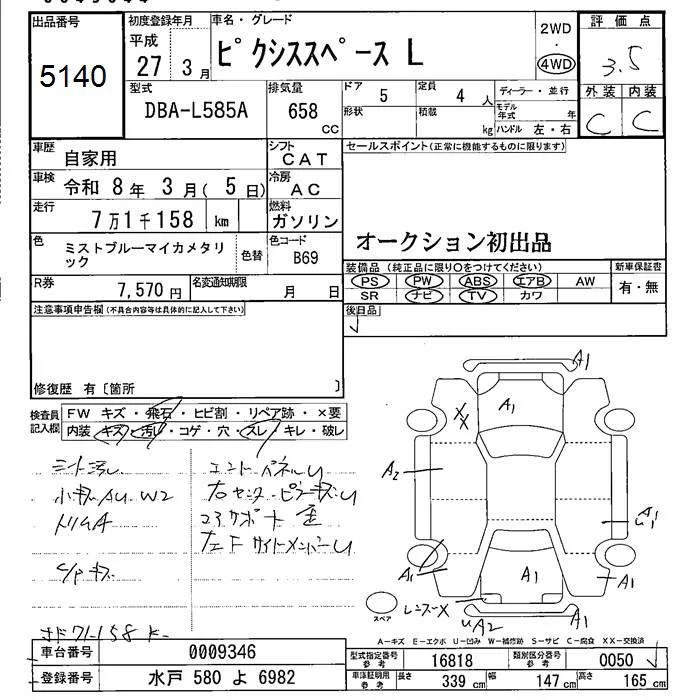 出品番号 初度登録年月 車名・グレード 2WD 評価点
5140 平成 27 3月 ピクシススペース L ・ 4WD 3.5
型式 排気量 ドア 5 定員 4人 ディーラー・並行 外装 内装
DBA-L585A 658 CC 形状 積載 kg モデル年式 年 ハンドル 左・右 C C
車歴 自家用 シフト CAT セールスポイント(正常に機能するものに限ります)
車検 令和 8年 3月( 5日) 冷房 AC
走行 7万1千158 km 燃料 ガソリン
オークション初出品
色 ミストブルーマイカメタリック 色替 色コード B69
装備品(純正品に限り○をつけてください) 新車保証書
R券 7,570円 名変通知期限 月 日 PS PW ABS エアB AW 有・無
SR ナビ TV カワ
注意事項申告欄(不具合内容等は具体的に記入して下さい) 後日品
修復歴 有〔箇所 〕
検査員記入欄 FW キズ・飛石・ヒビ割・リペア跡・×要
内装 キズ・汚レ・コゲ・穴・スレ・キレ・破レ
シート汚レ
小キズAU W2
トリムA
エンドパネルU
右センターピラーキズU
コアサポート 歪
左F サイドメンバーU
A1
A1
XX
A2
A1
U1
A1
A1
A1
レンズX
スペア
UA2
A1
A-キズ E-エクボ U-凹み W-補修跡 S-サビ C-腐食 XX-交換済
車台番号 0009346 型式指定番号 参考 16818 類別区分番号 参考 0050
登録番号 水戸 580 よ 6982 車庫証明用 参考 長さ 339 cm 幅 147 cm 高さ 165 cm